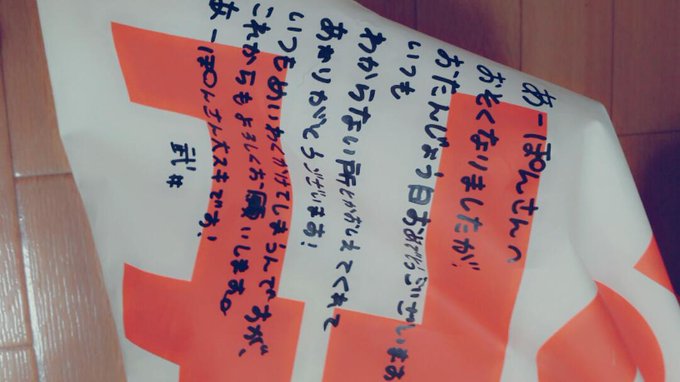 あーぽんさんへ
おそくなりましたが、
おたんじょう日おめでとうございます
いつも
わからない所とかおしえてくれて
ありがとうございます!
いつもめいわくかけてしまうんですが、
これからもよろしくお願いします。
あーぽんさん大スキです!
武井